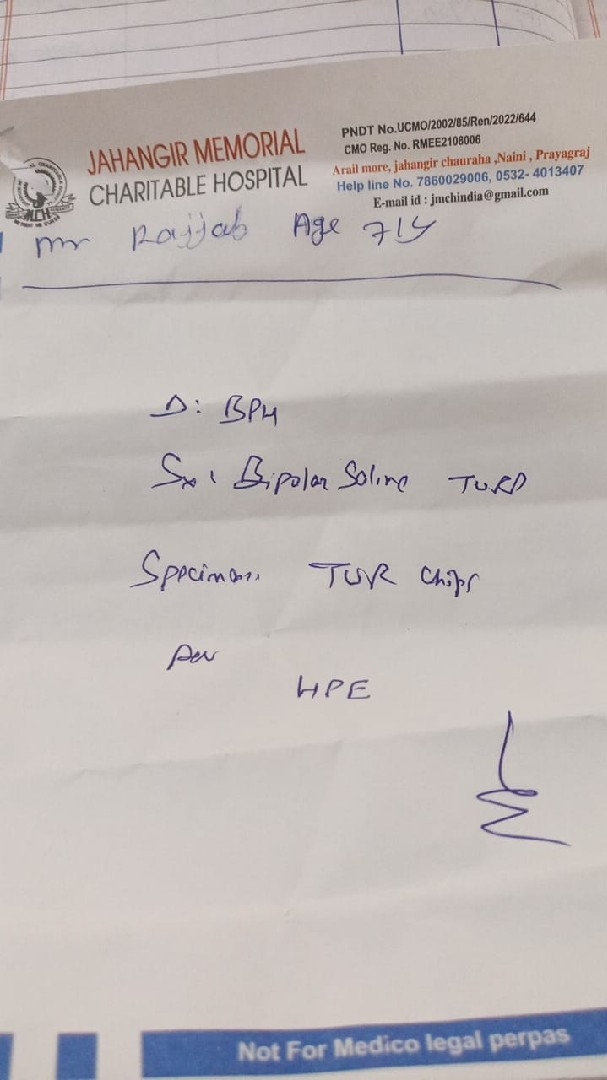 JAHANGIR MEMORIAL
CHARITABLE HOSPITAL
PNDT No.UCMO/2002/85/Ren/2022/644
CMO Reg. No. RMEE2108006
Arail more, jahangir chauraha ,Naini , Prayagraj
Help line No. 7860029006, 0532- 4013407
E-mail id : jmchindia@gmail.com
Mr Rajjab Age 71y
D: BPH
Sx: Bipolar Saline TURP
Specimen: TUR chips
HPE
Not For Medico legal perpas